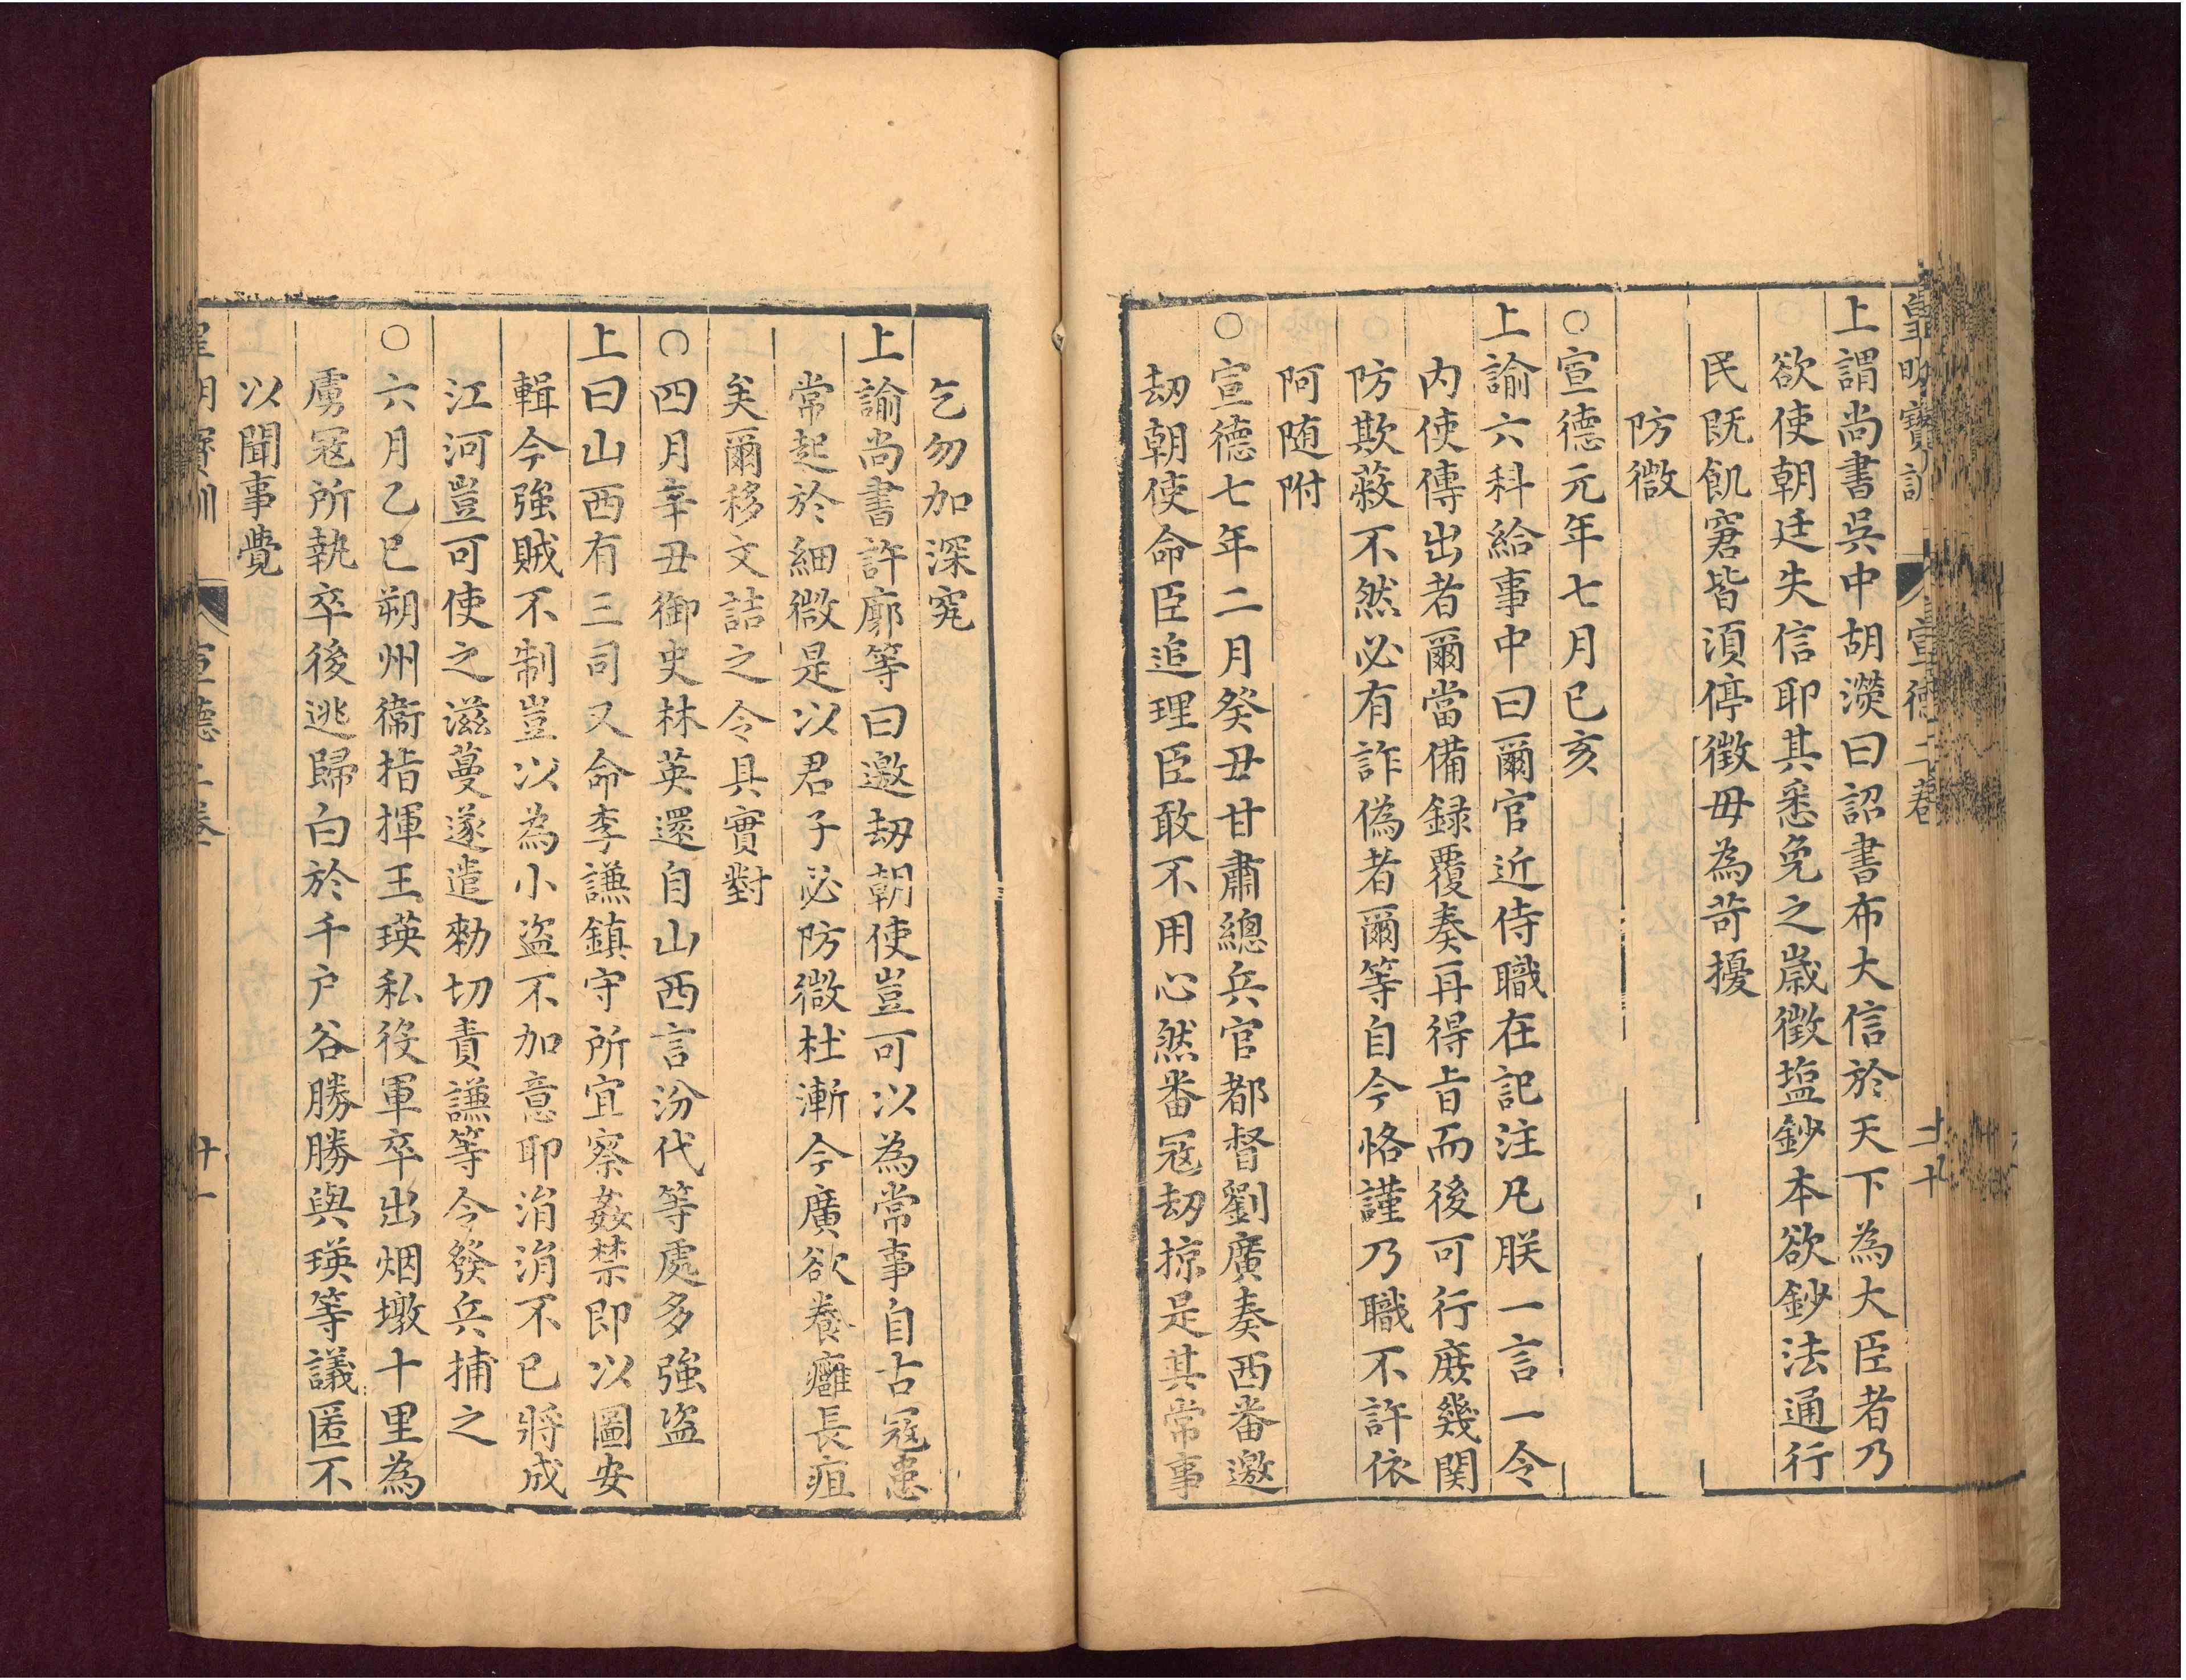 皇明寶訓 宣德二卷 二十
上謂尚書吳中胡濙曰詔書布大信於天下為大臣者乃
欲使朝廷失信耶其悉免之歲徵塩鈔本欲鈔法通行
民既飢窘皆湏停徵毋為苛擾
防微
○宣德元年七月已亥
上諭六科給事中曰爾官近侍職在記注凡朕一言一令
内使傳出者爾當備録覆奏再得㫖而後可行庻幾関
防欺蔽不然必有詐偽者爾等自今恪謹乃職不許依
阿随附
○宣德七年二月癸丑甘肅總兵官都督劉廣奏西番邀
刼朝使命臣追理臣敢不用心然番冦刼掠是其常事
乞勿加深究
上諭尚書許廓等曰邀刼朝使豈可以為常事自古冦患
常起於細微是以君子必防微杜漸今廣欲養癰長疽
矣爾移文詰之令具實對
○四月辛丑御史林英還自山西言汾代等處多強盜
上曰山西有三司又命李謙鎮守所宜察姦禁即以圖安
輯今強賊不制豈以為小盜不加意耶涓涓不已將成
江河豈可使之滋蔓遂遣勑切責謙等令發兵捕之
○六月乙巳朔州衞指揮王瑛私役軍卒出烟墩十里為
虜冦所執卒後逃歸白於千户谷勝勝與瑛等議匿不
以聞事覺
皇明寶訓 宣德二卷 廿一